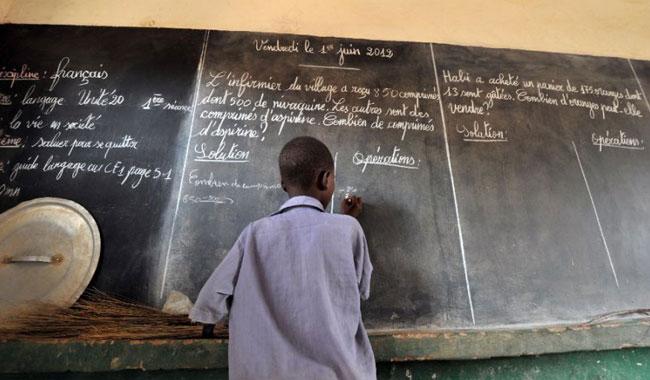 Vendredi le 1er juin 2012
Discipline : français
langage Unité 20 1ère séance
la vie en société
saluer pour se quitter
guide langage cur CE1 page 51
mn
L'infirmier du village a reçu 850 comprimés
dont 500 de nivaquine. Les autres sont des
comprimés d'aspirine. Combien de comprimés
d'aspirine?
Solution
Opérations :
Combien de comprimés
850
Habi a acheté un panier de 175 oranges dont
13 sont gâtées. Combien d'oranges peut-elle
vendre?
Solution
Opérations :